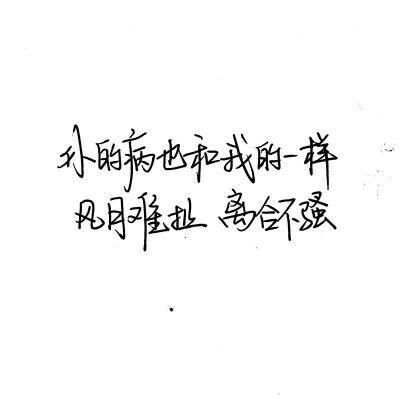 的病也和我的一样
风月难扯 离合不骚